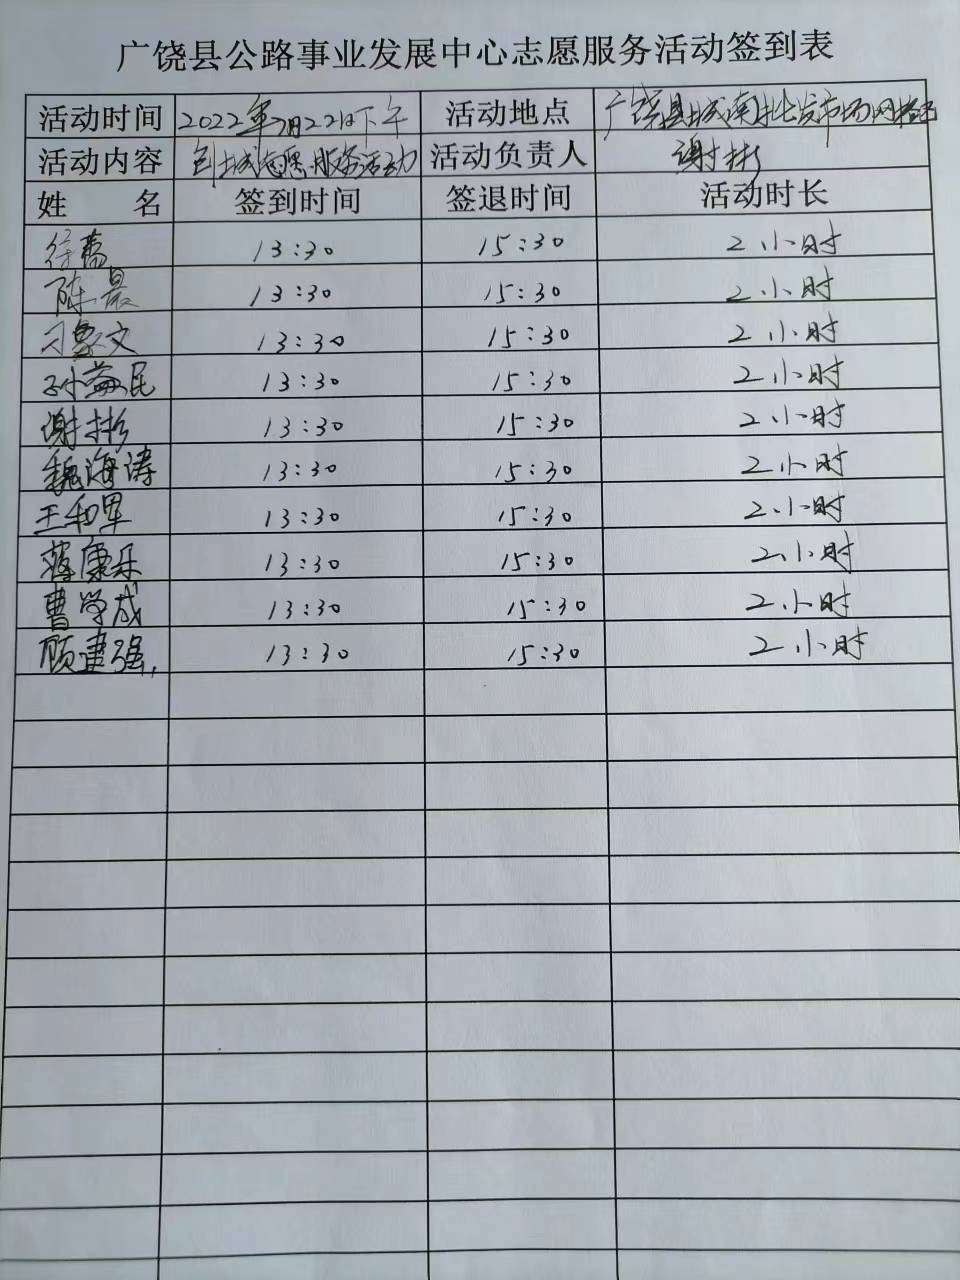 广饶县公路事业发展中心志愿服务活动签到表
活动时间 2022年7月22日下午 活动地点 广饶县城南批发市场网格
活动内容 创城志愿服务活动 活动负责人 谢彬
姓 名 签到时间 签退时间 活动时长
徐磊 13:30 15:30 2小时
陈晨 13:30 15:30 2小时
刁象文 13:30 15:30 2小时
孙益民 13:30 15:30 2小时
谢彬 13:30 15:30 2小时
魏海涛 13:30 15:30 2小时
王和军 13:30 15:30 2小时
蒋康乐 13:30 15:30 2小时
曹学成 13:30 15:30 2小时
顾建强 13:30 15:30 2小时